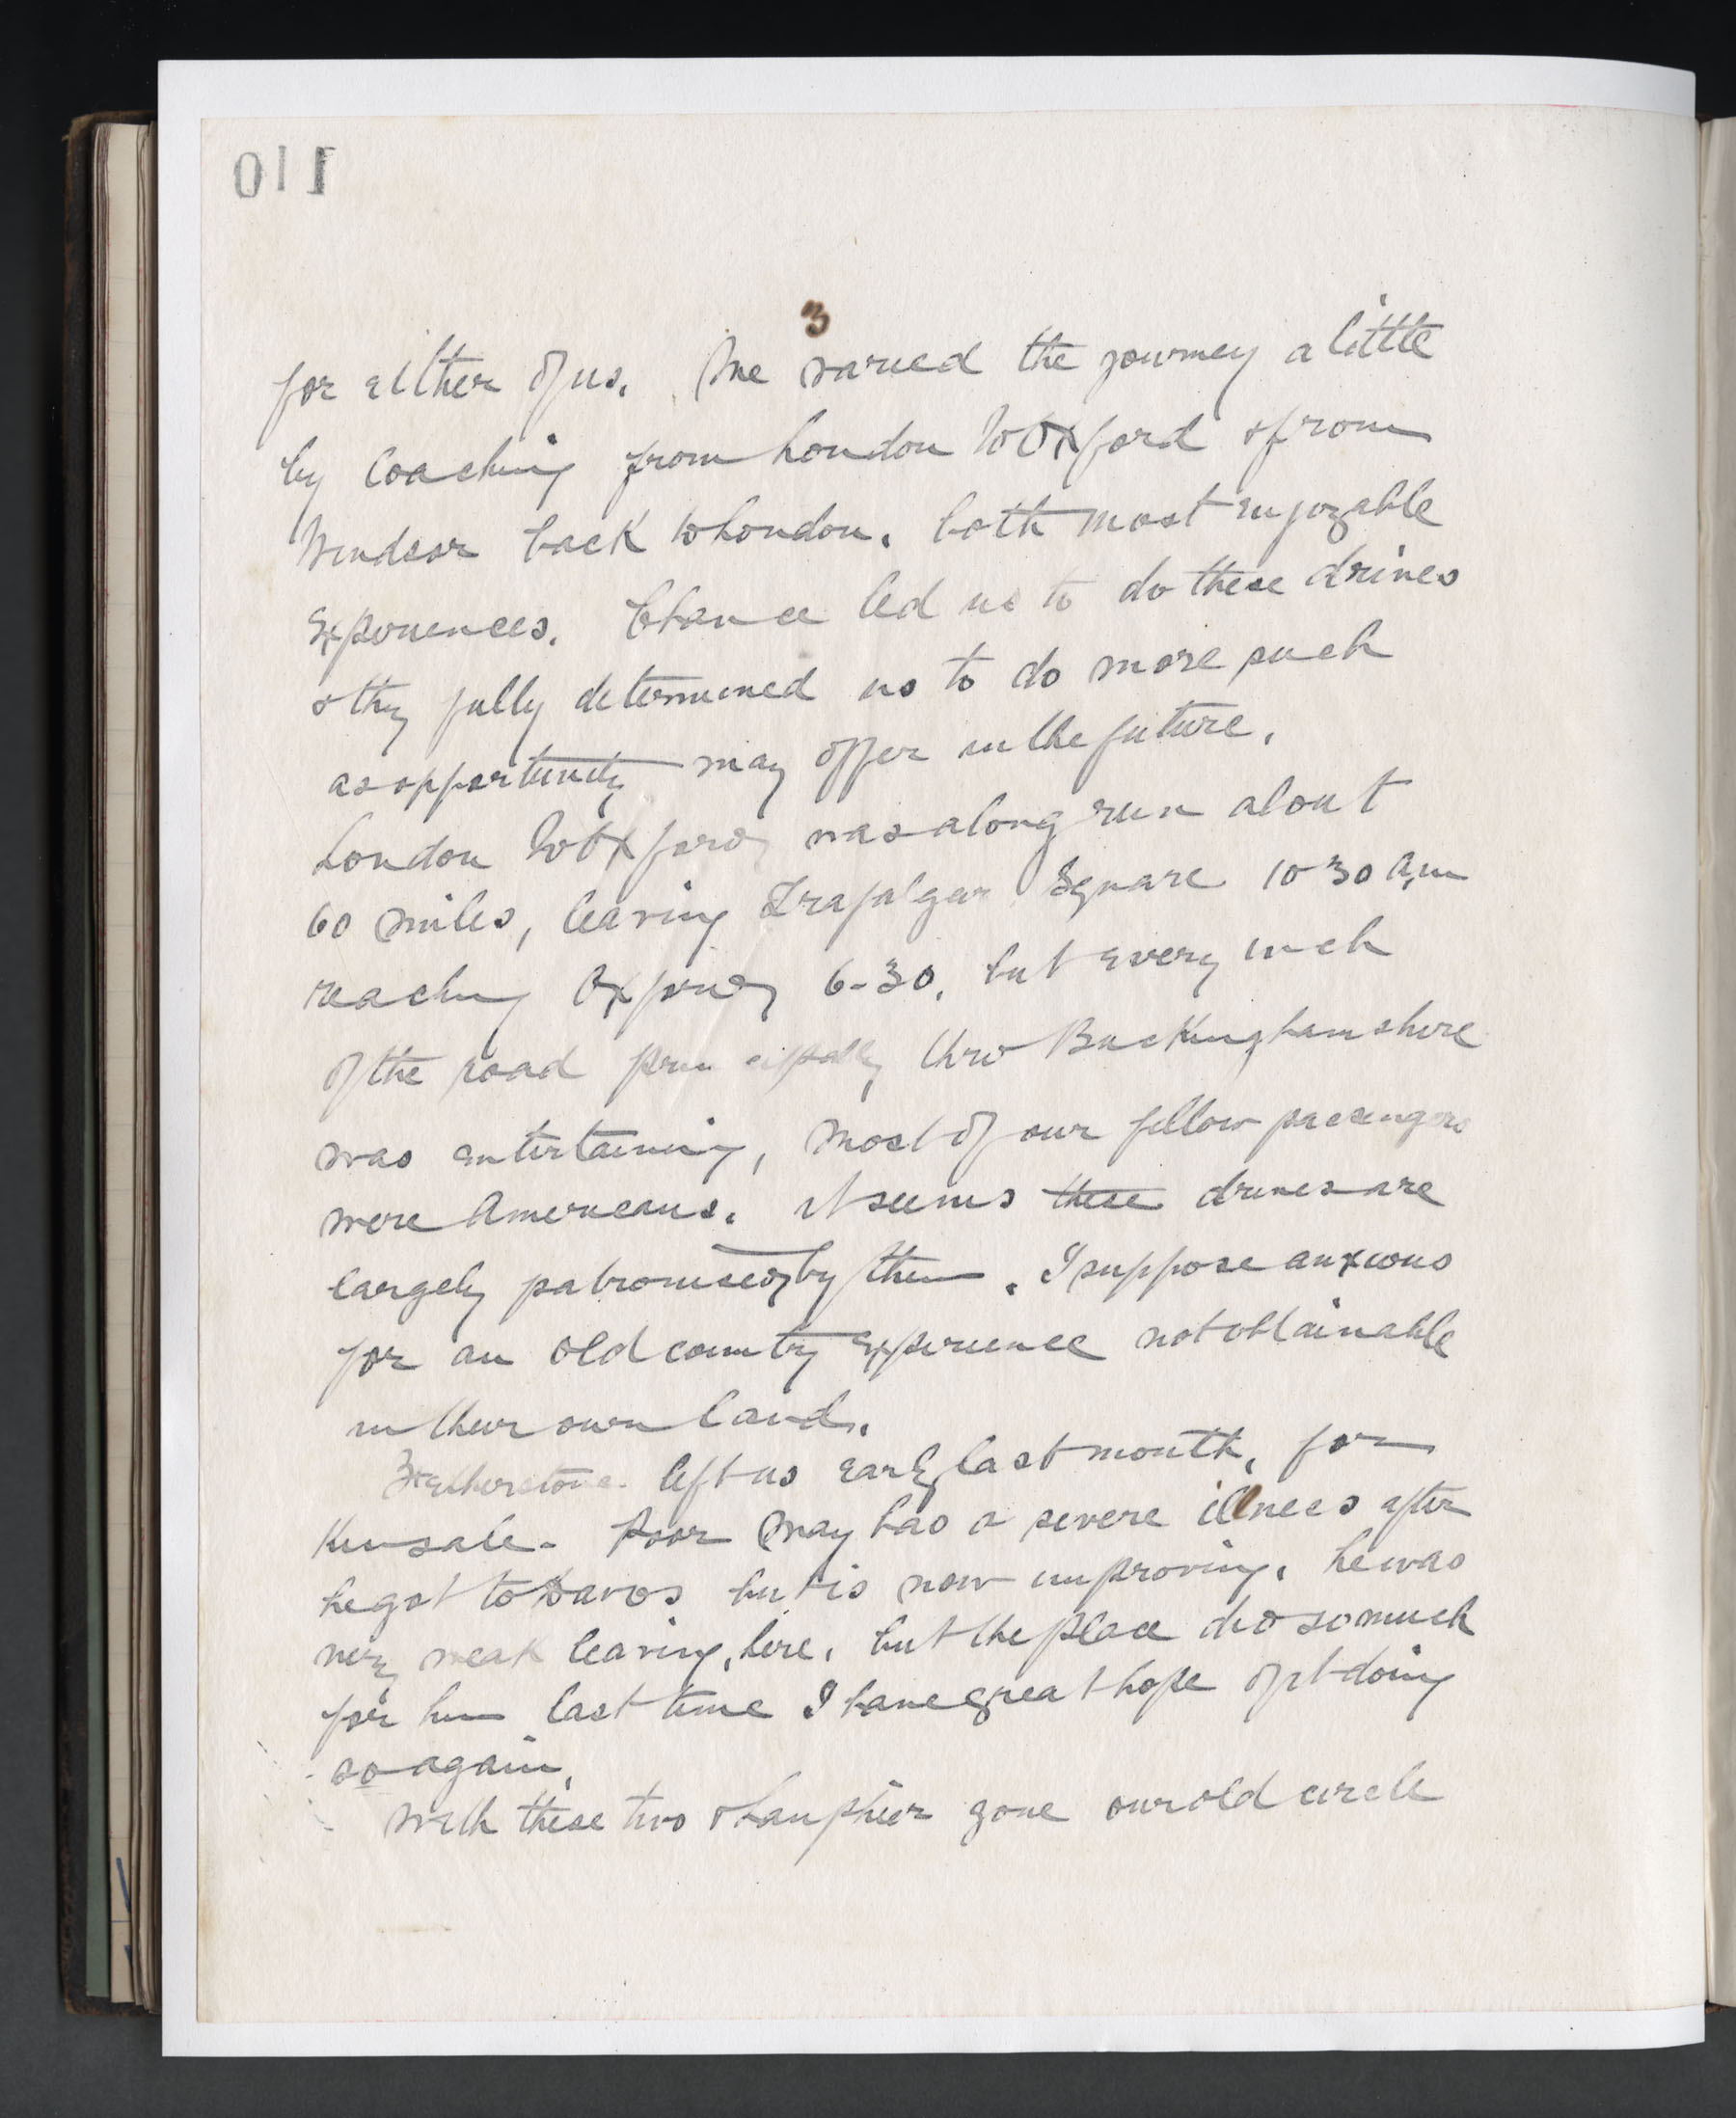 011
3
for either of us. We varied the journey a little
by coaching from London to Oxford & from
Windsor back to London. both most enjoyable
experiences. Chance led us to do these drives
& they fully determined us to do more such
as opportunity may offer in the future.
London to Oxford was a long run about
60 miles, leaving Trafalgar Square 10-30 am
reaching Oxford 6-30, but every inch
of the road principally thro Buckinghamshire
was entertaining, most of our fellow passengers
were Americans. it seems these drives are
largely patronised by them. I suppose anxious
for an old country experience not obtainable
in their own land.
Fetherstone left us early last month, for
Kinsale. Poor May had a severe illness after
he got to Davos but is now improving. he was
very weak leaving here. but the place did so much
for him last time I have great hope of it doing
so again.
With these two & Lanphier gone our old circle